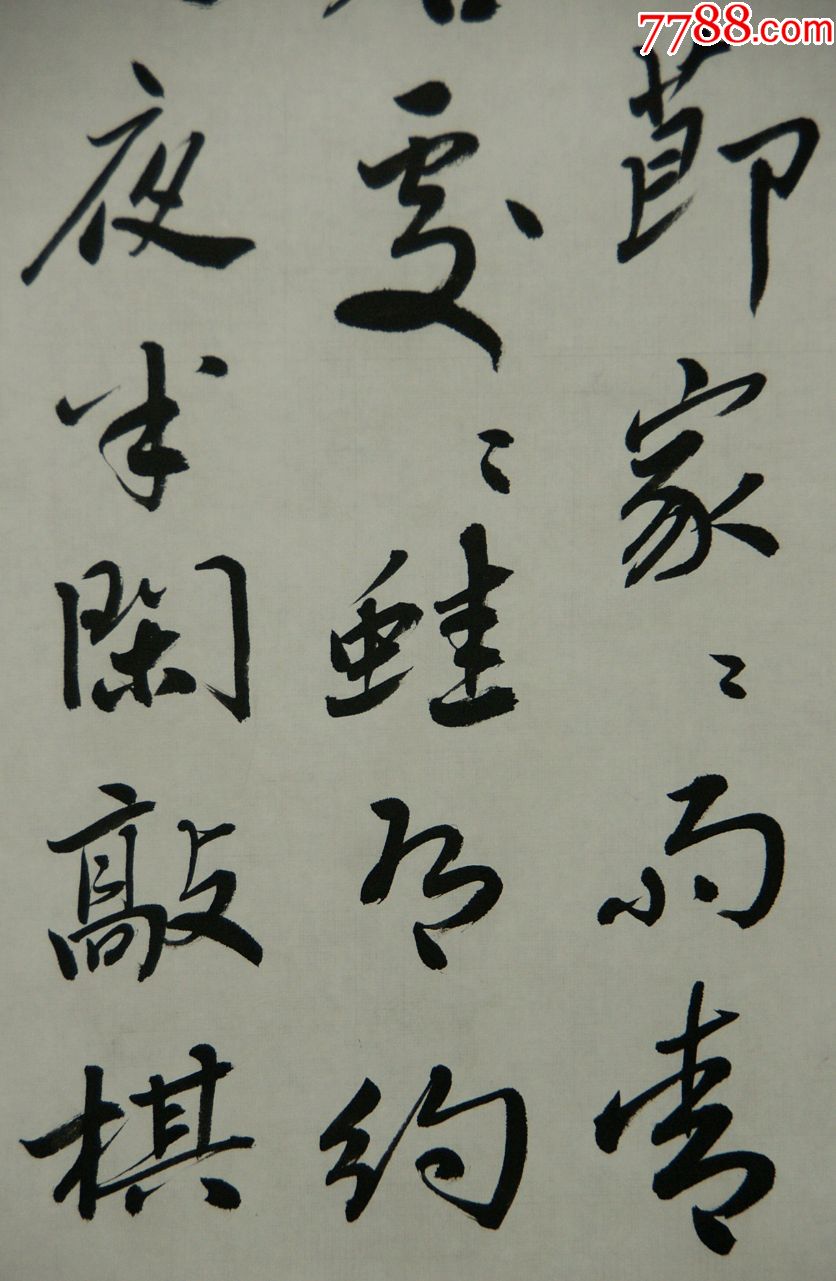 7788.com
節家〻雨青
處〻蛙有約
夜半閑敲棋